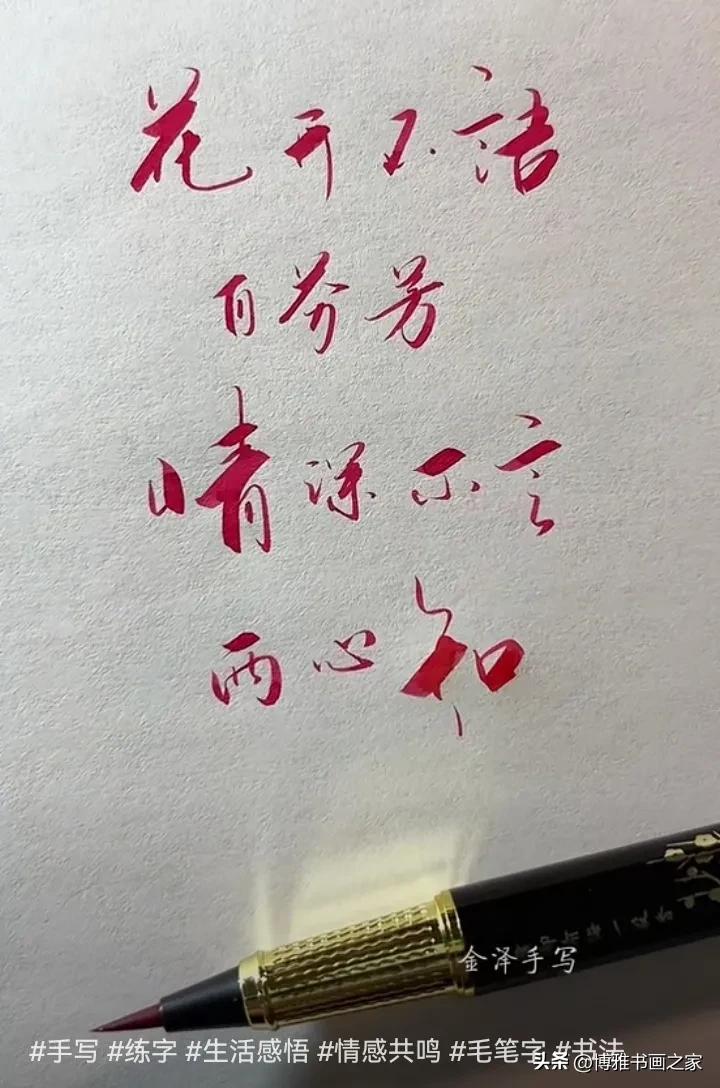 花开不语
自芬芳
情深不言
两心知
金泽手写
#手写 #练字 #生活感悟 #情感共鸣 #毛笔字 #书法
头条 @博雅书画之家